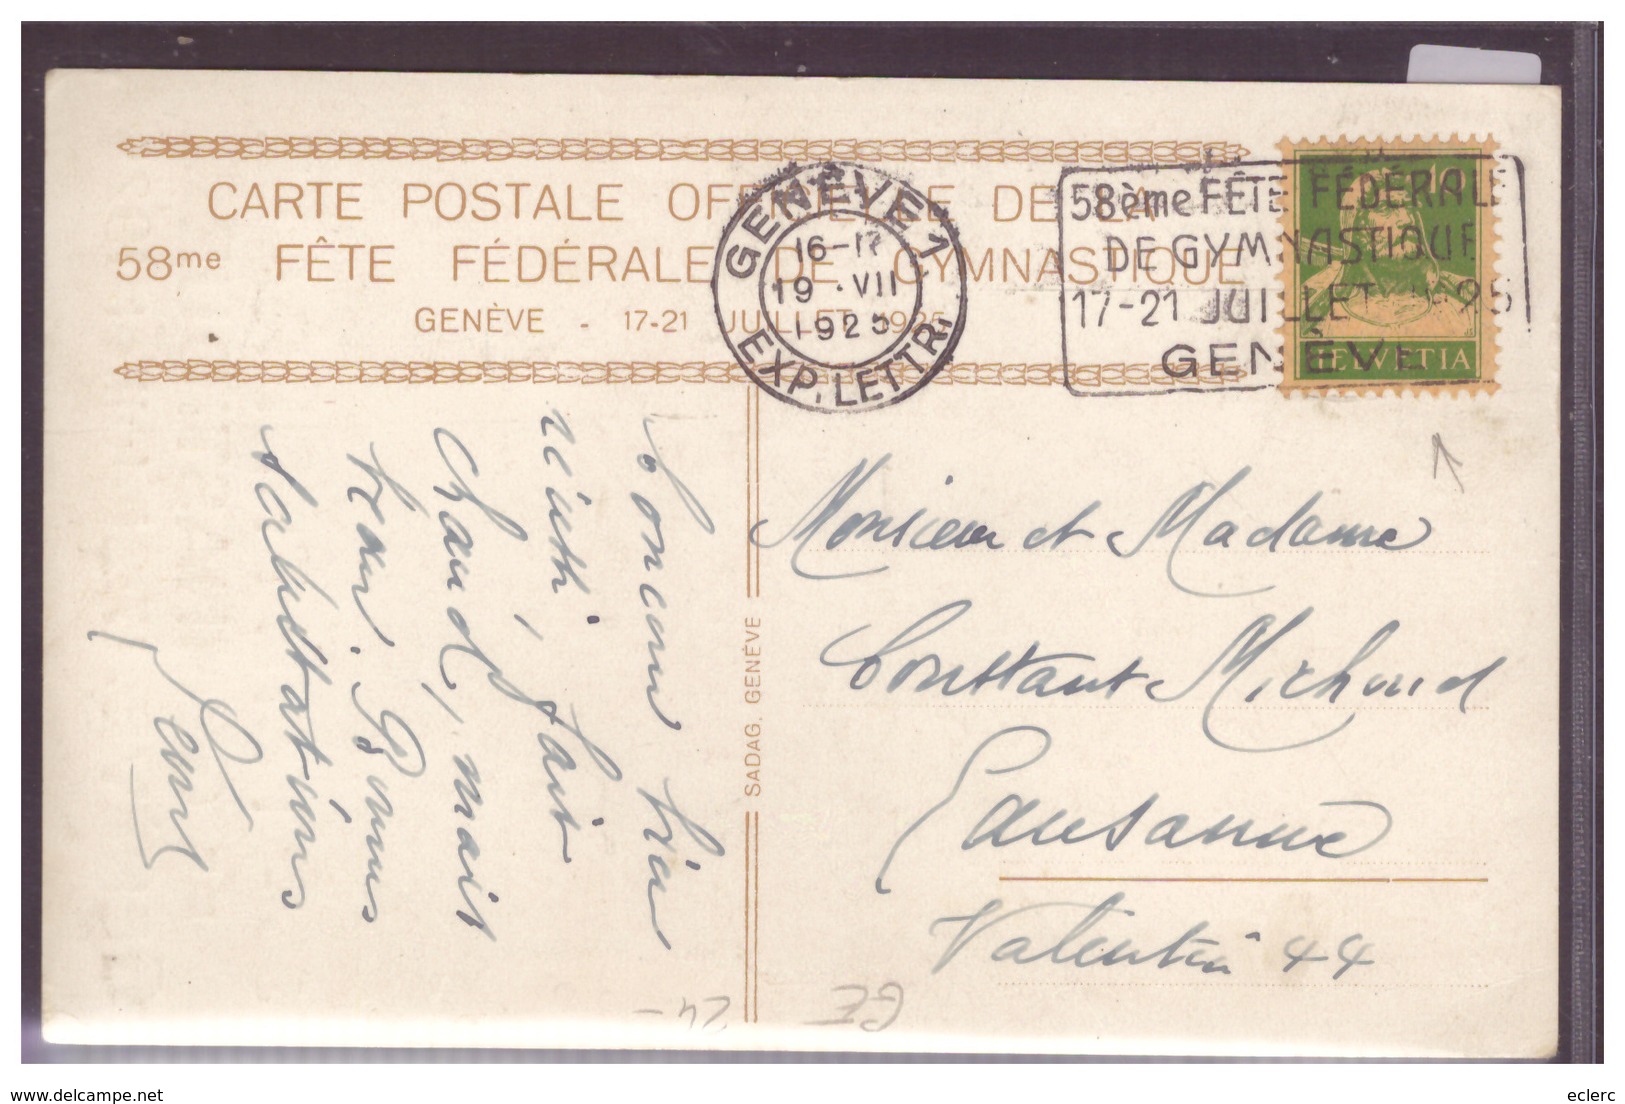 CARTE POSTALE OFFICIELLE DE LA
58me FÊTE FÉDÉRALE DE GYMNASTIQUE
GENÈVE - 17-21 JUILLET 1925
GENÈVE 1
16-17
19. VII
1925
EXP. LETTR.
58ème FÊTE FÉDÉRALE
DE GYMNASTIQUE
17-21 JUILLET 1925
GENÈVE
10
HELVETIA
Concours très
réussi, fait
chaud, mait
beau. Bonnes
salutations
SADAG, GENÈVE
Monsieur et Madame
Constant Michoud
Lausanne
Valentin 44
GE
24-
delcampe.net
eclerc